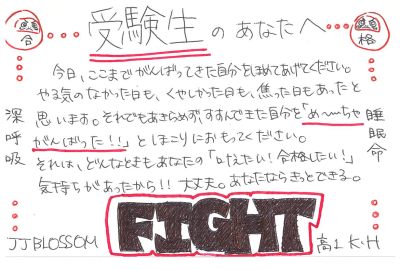 合 受験生のあなたへ 格
今日、ここまでがんばってきた自分をほめてあげてください。
やる気のなかった日も、くやしかった日も、焦った日もあったと
思います。それでもあきらめず、すすんできた自分を「め〜〜ちゃ
がんばった!!」とほこりにおもってください。
それは、どんなときもあなたの「叶えたい!合格したい!」
気持ちがあったから!!大丈夫。あなたならきっとできる。
深呼吸
睡眠命
FIGHT
JJ BLOSSOM
高2 K・H